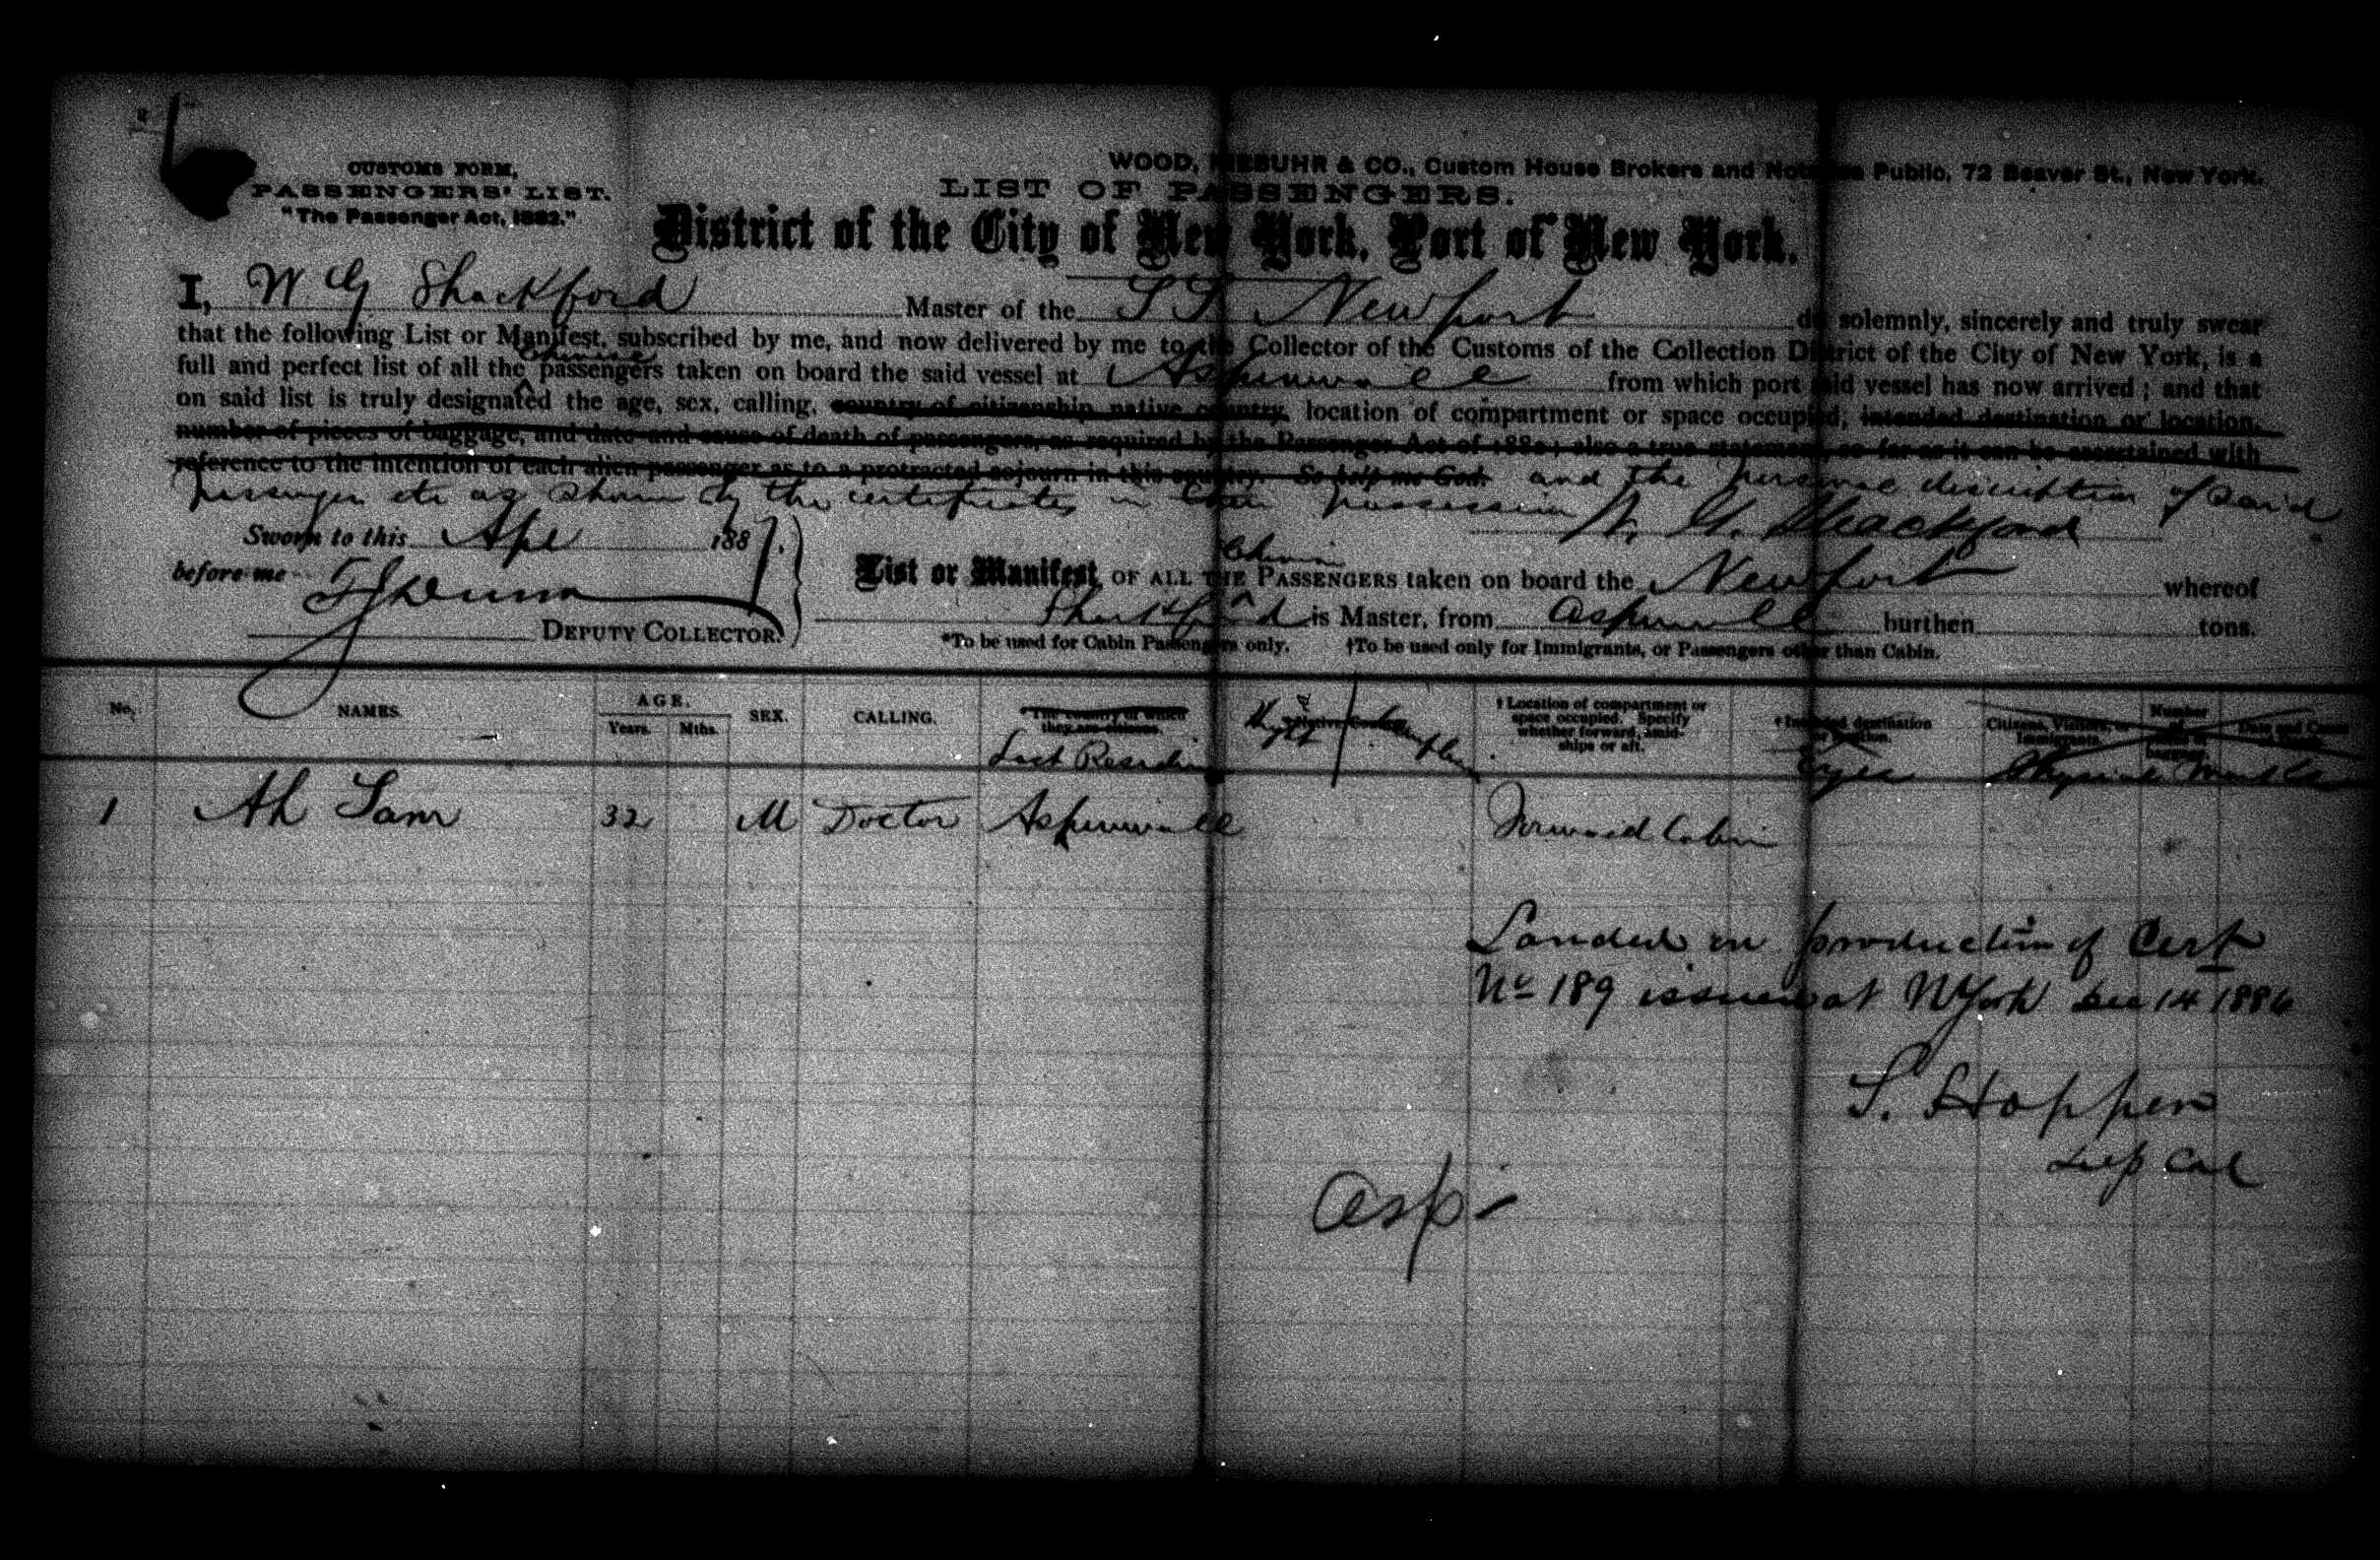 CUSTOMS FORM,
PASSENGERS' LIST.
"The Passenger Act, 1882."
WOOD, NIEBUHR & CO., Custom House Brokers and Notaries Public, 72 Beaver St., New York.
LIST OF PASSENGERS.
District of the City of New York, Port of New York.
I, W G Shackford Master of the SS Newport do solemnly, sincerely and truly swear
that the following List or Manifest, subscribed by me, and now delivered by me to the Collector of the Customs of the Collection District of the City of New York, is a
Chinese
full and perfect list of all the passengers taken on board the said vessel at Aspinwall from which port said vessel has now arrived; and that
on said list is truly designated the age, sex, calling, country of citizenship, native country, location of compartment or space occupied, intended destination or location,
number of pieces of baggage, and date and cause of death of passengers, as required by the Passenger Act of 1882; also a true statement, so far as it can be ascertained with
reference to the intention of each alien passenger as to a protracted sojourn in this country. So help me God. and the personal description of said
passenger etc as shown by the certificates in their possession
W. G. Shackford
Sworn to this Apl 1887.
before me
DEPUTY COLLECTOR.
Chinese
List or Manifest OF ALL THE PASSENGERS taken on board the Newport whereof
Shackford is Master, from Aspinwall burthen tons.
*To be used for Cabin Passengers only. †To be used only for Immigrants, or Passengers other than Cabin.
No. NAMES. AGE. Years. Mths. SEX. CALLING. The country of which they are citizens. Last Residence Native Country † Location of compartment or space occupied. Specify whether forward, amidships or aft. † Intended destination or location. Eyes Citizens, Visitors, or Immigrants. Physical Marks Number Date and Cause
1 Ah Sam 32 M Doctor Aspinwall Forward Cabin
Landed on production of Cert
No 189 issued at N York Dec 14 1886
S. Hopper
Dep Col
Asp -